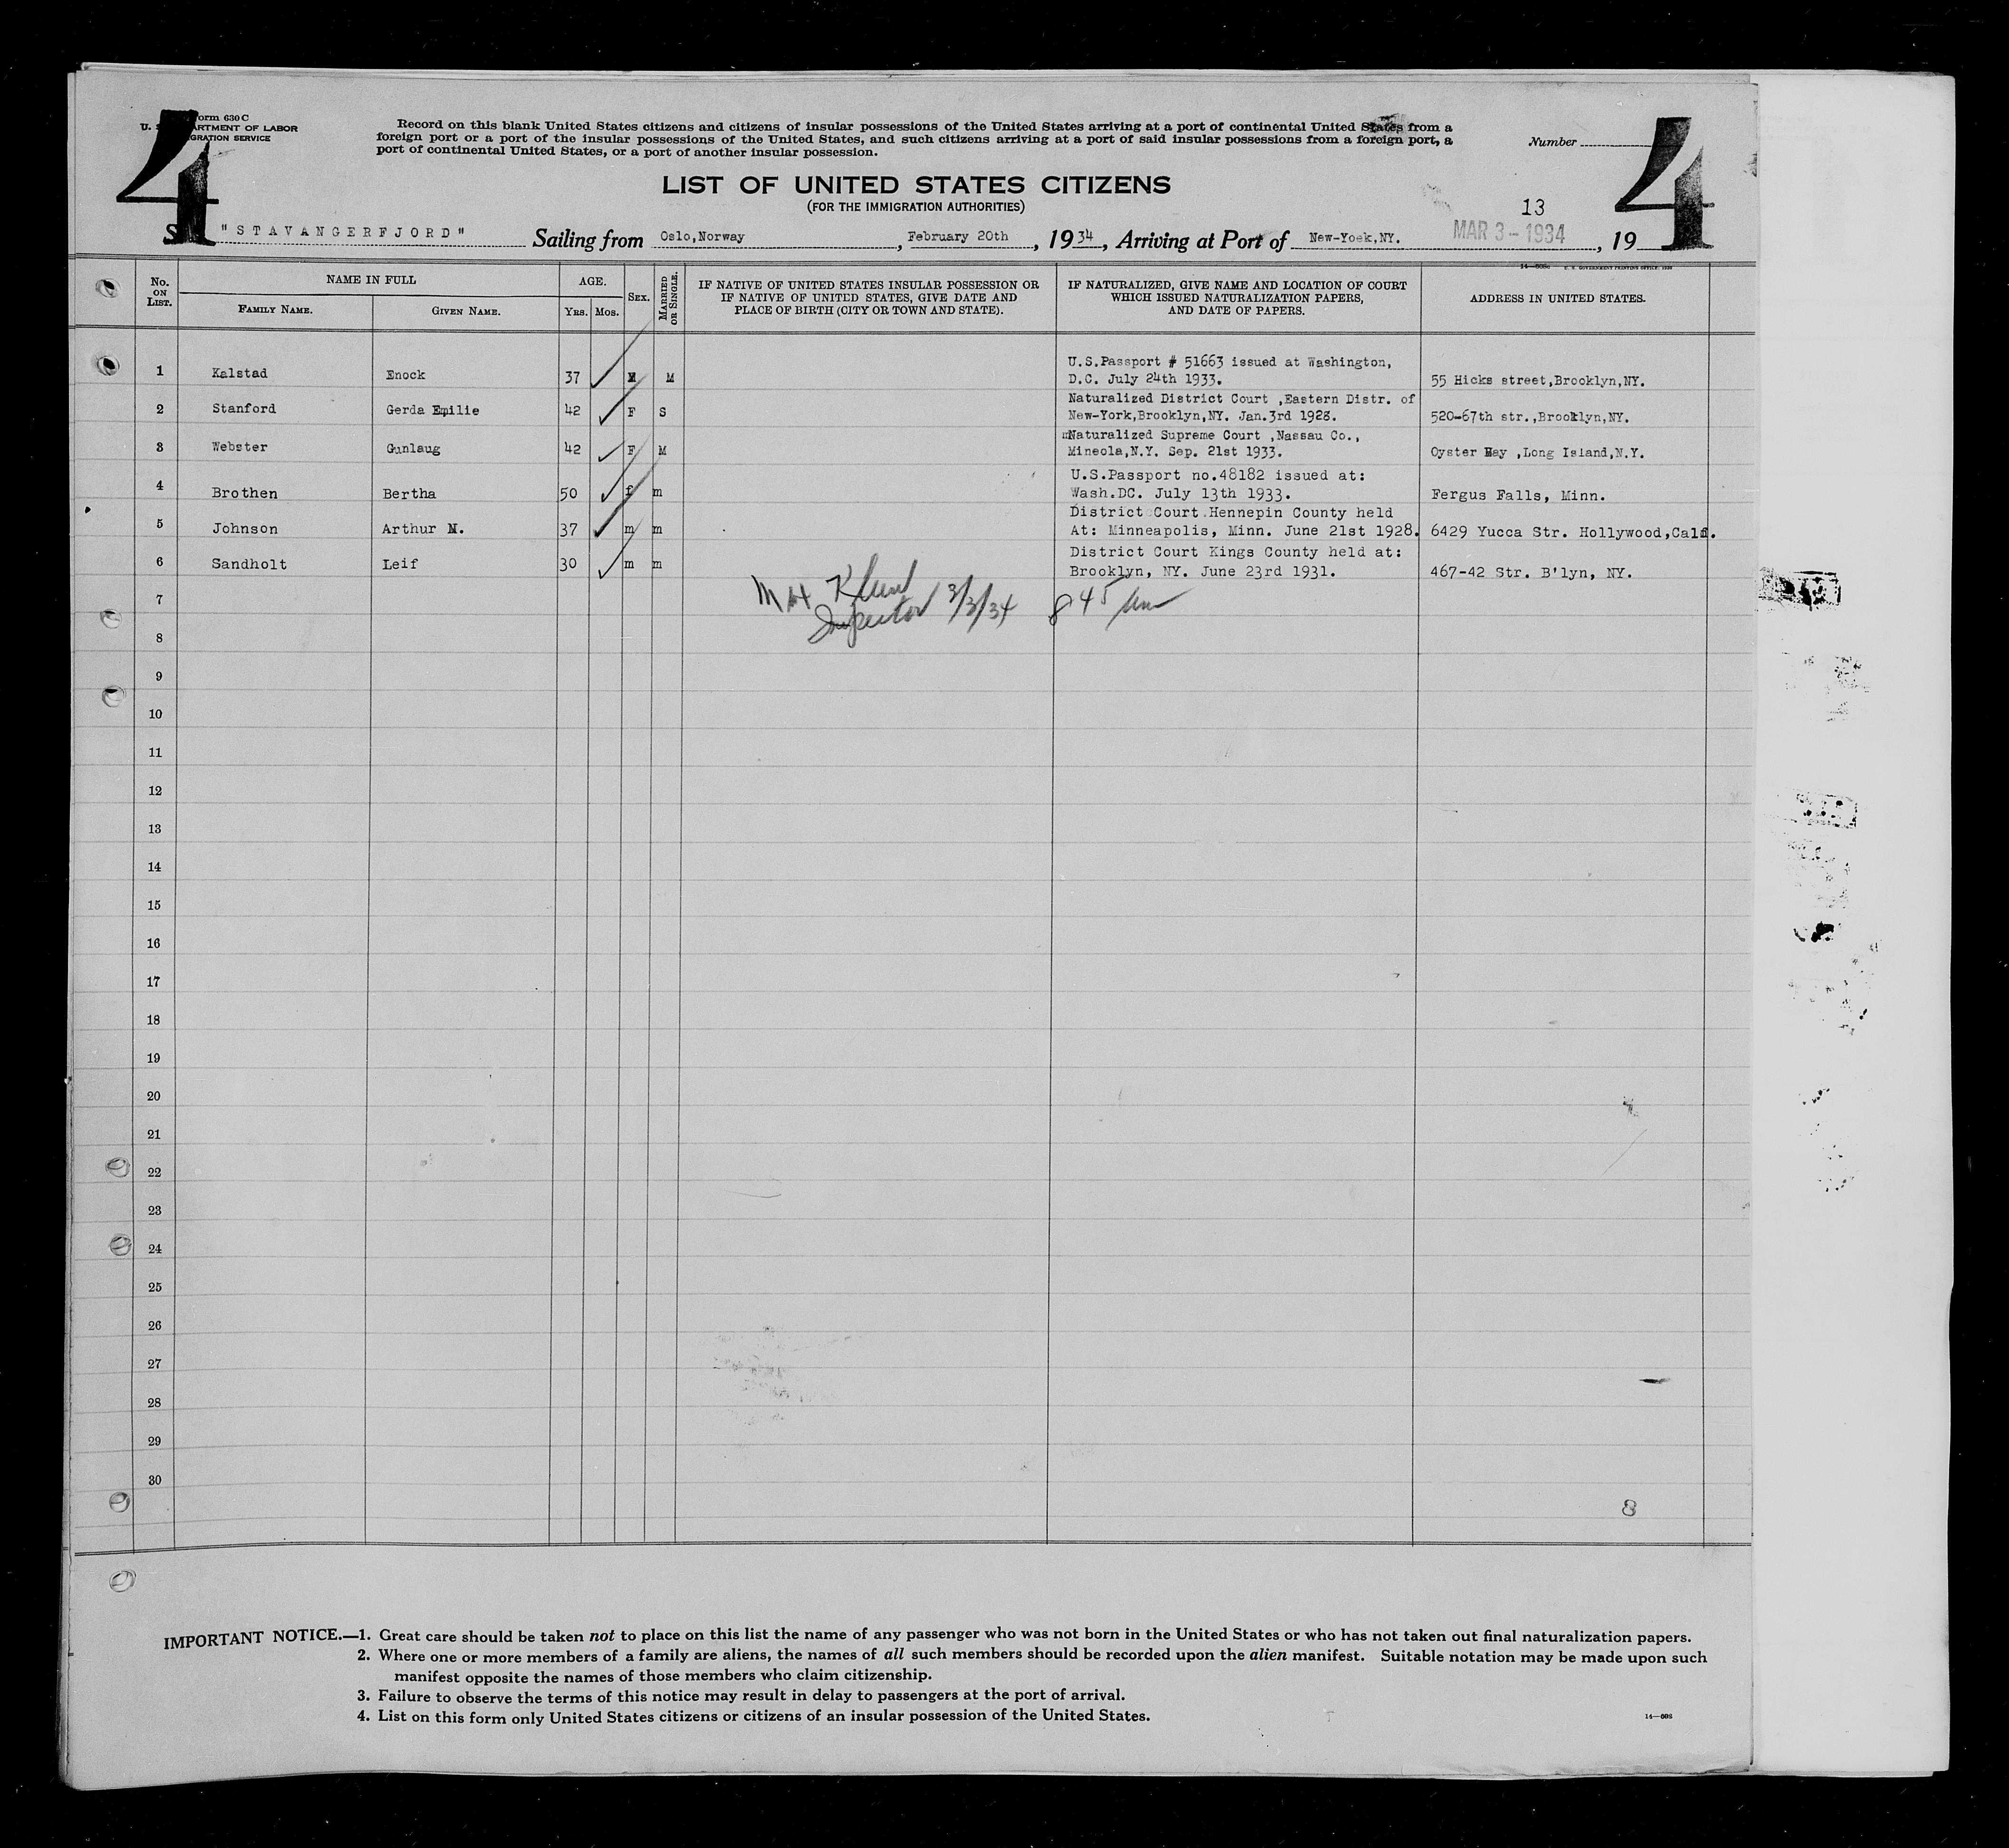 Form 630 C
U. S. DEPARTMENT OF LABOR
IMMIGRATION SERVICE
4
4
Record on this blank United States citizens and citizens of insular possessions of the United States arriving at a port of continental United States from a
foreign port or a port of the insular possessions of the United States, and such citizens arriving at a port of said insular possessions from a foreign port, a
port of continental United States, or a port of another insular possession.
Number
LIST OF UNITED STATES CITIZENS
(FOR THE IMMIGRATION AUTHORITIES)
13
S "STAVANGERFJORD" Sailing from Oslo,Norway, February 20th, 1934, Arriving at Port of New-Yoek,NY. MAR 3-1934, 19
No. ON LIST. NAME IN FULL AGE. SEX. MARRIED OR SINGLE. IF NATIVE OF UNITED STATES INSULAR POSSESSION OR
IF NATIVE OF UNITED STATES, GIVE DATE AND
PLACE OF BIRTH (CITY OR TOWN AND STATE).
IF NATURALIZED, GIVE NAME AND LOCATION OF COURT
WHICH ISSUED NATURALIZATION PAPERS,
AND DATE OF PAPERS.
ADDRESS IN UNITED STATES.
FAMILY NAME. GIVEN NAME. YRS. MOS.
U.S.Passport # 51663 issued at Washington,
1 Kalstad Enock 37 M M D.C. July 24th 1933. 55 Hicks street,Brooklyn,NY.
Naturalized District Court ,Eastern Distr. of
2 Stanford Gerda Emilie 42 F S New-York,Brooklyn,NY. Jan.3rd 1928. 520-67th str.,Brooklyn,NY.
Naturalized Supreme Court ,Nassau Co.,
3 Webster Gunlaug 42 F M Mineola,N.Y. Sep. 21st 1933. Oyster Bay ,Long Island,N.Y.
U.S.Passport no.48182 issued at:
4 Brothen Bertha 50 f m Wash.DC. July 13th 1933. Fergus Falls, Minn.
District Court Hennepin County held
5 Johnson Arthur M. 37 m m At: Minneapolis, Minn. June 21st 1928. 6429 Yucca Str. Hollywood,Calf.
District Court Kings County held at:
6 Sandholt Leif 30 m m Brooklyn, NY. June 23rd 1931. 467-42 Str. B'lyn, NY.
7
Inspector 3/3/34 8 45
8
9
10
11
12
13
14
15
16
17
18
19
20
21
22
23
24
25
26
27
28
29
30
8
IMPORTANT NOTICE.—1. Great care should be taken not to place on this list the name of any passenger who was not born in the United States or who has not taken out final naturalization papers.
2. Where one or more members of a family are aliens, the names of all such members should be recorded upon the alien manifest. Suitable notation may be made upon such
manifest opposite the names of those members who claim citizenship.
3. Failure to observe the terms of this notice may result in delay to passengers at the port of arrival.
4. List on this form only United States citizens or citizens of an insular possession of the United States.